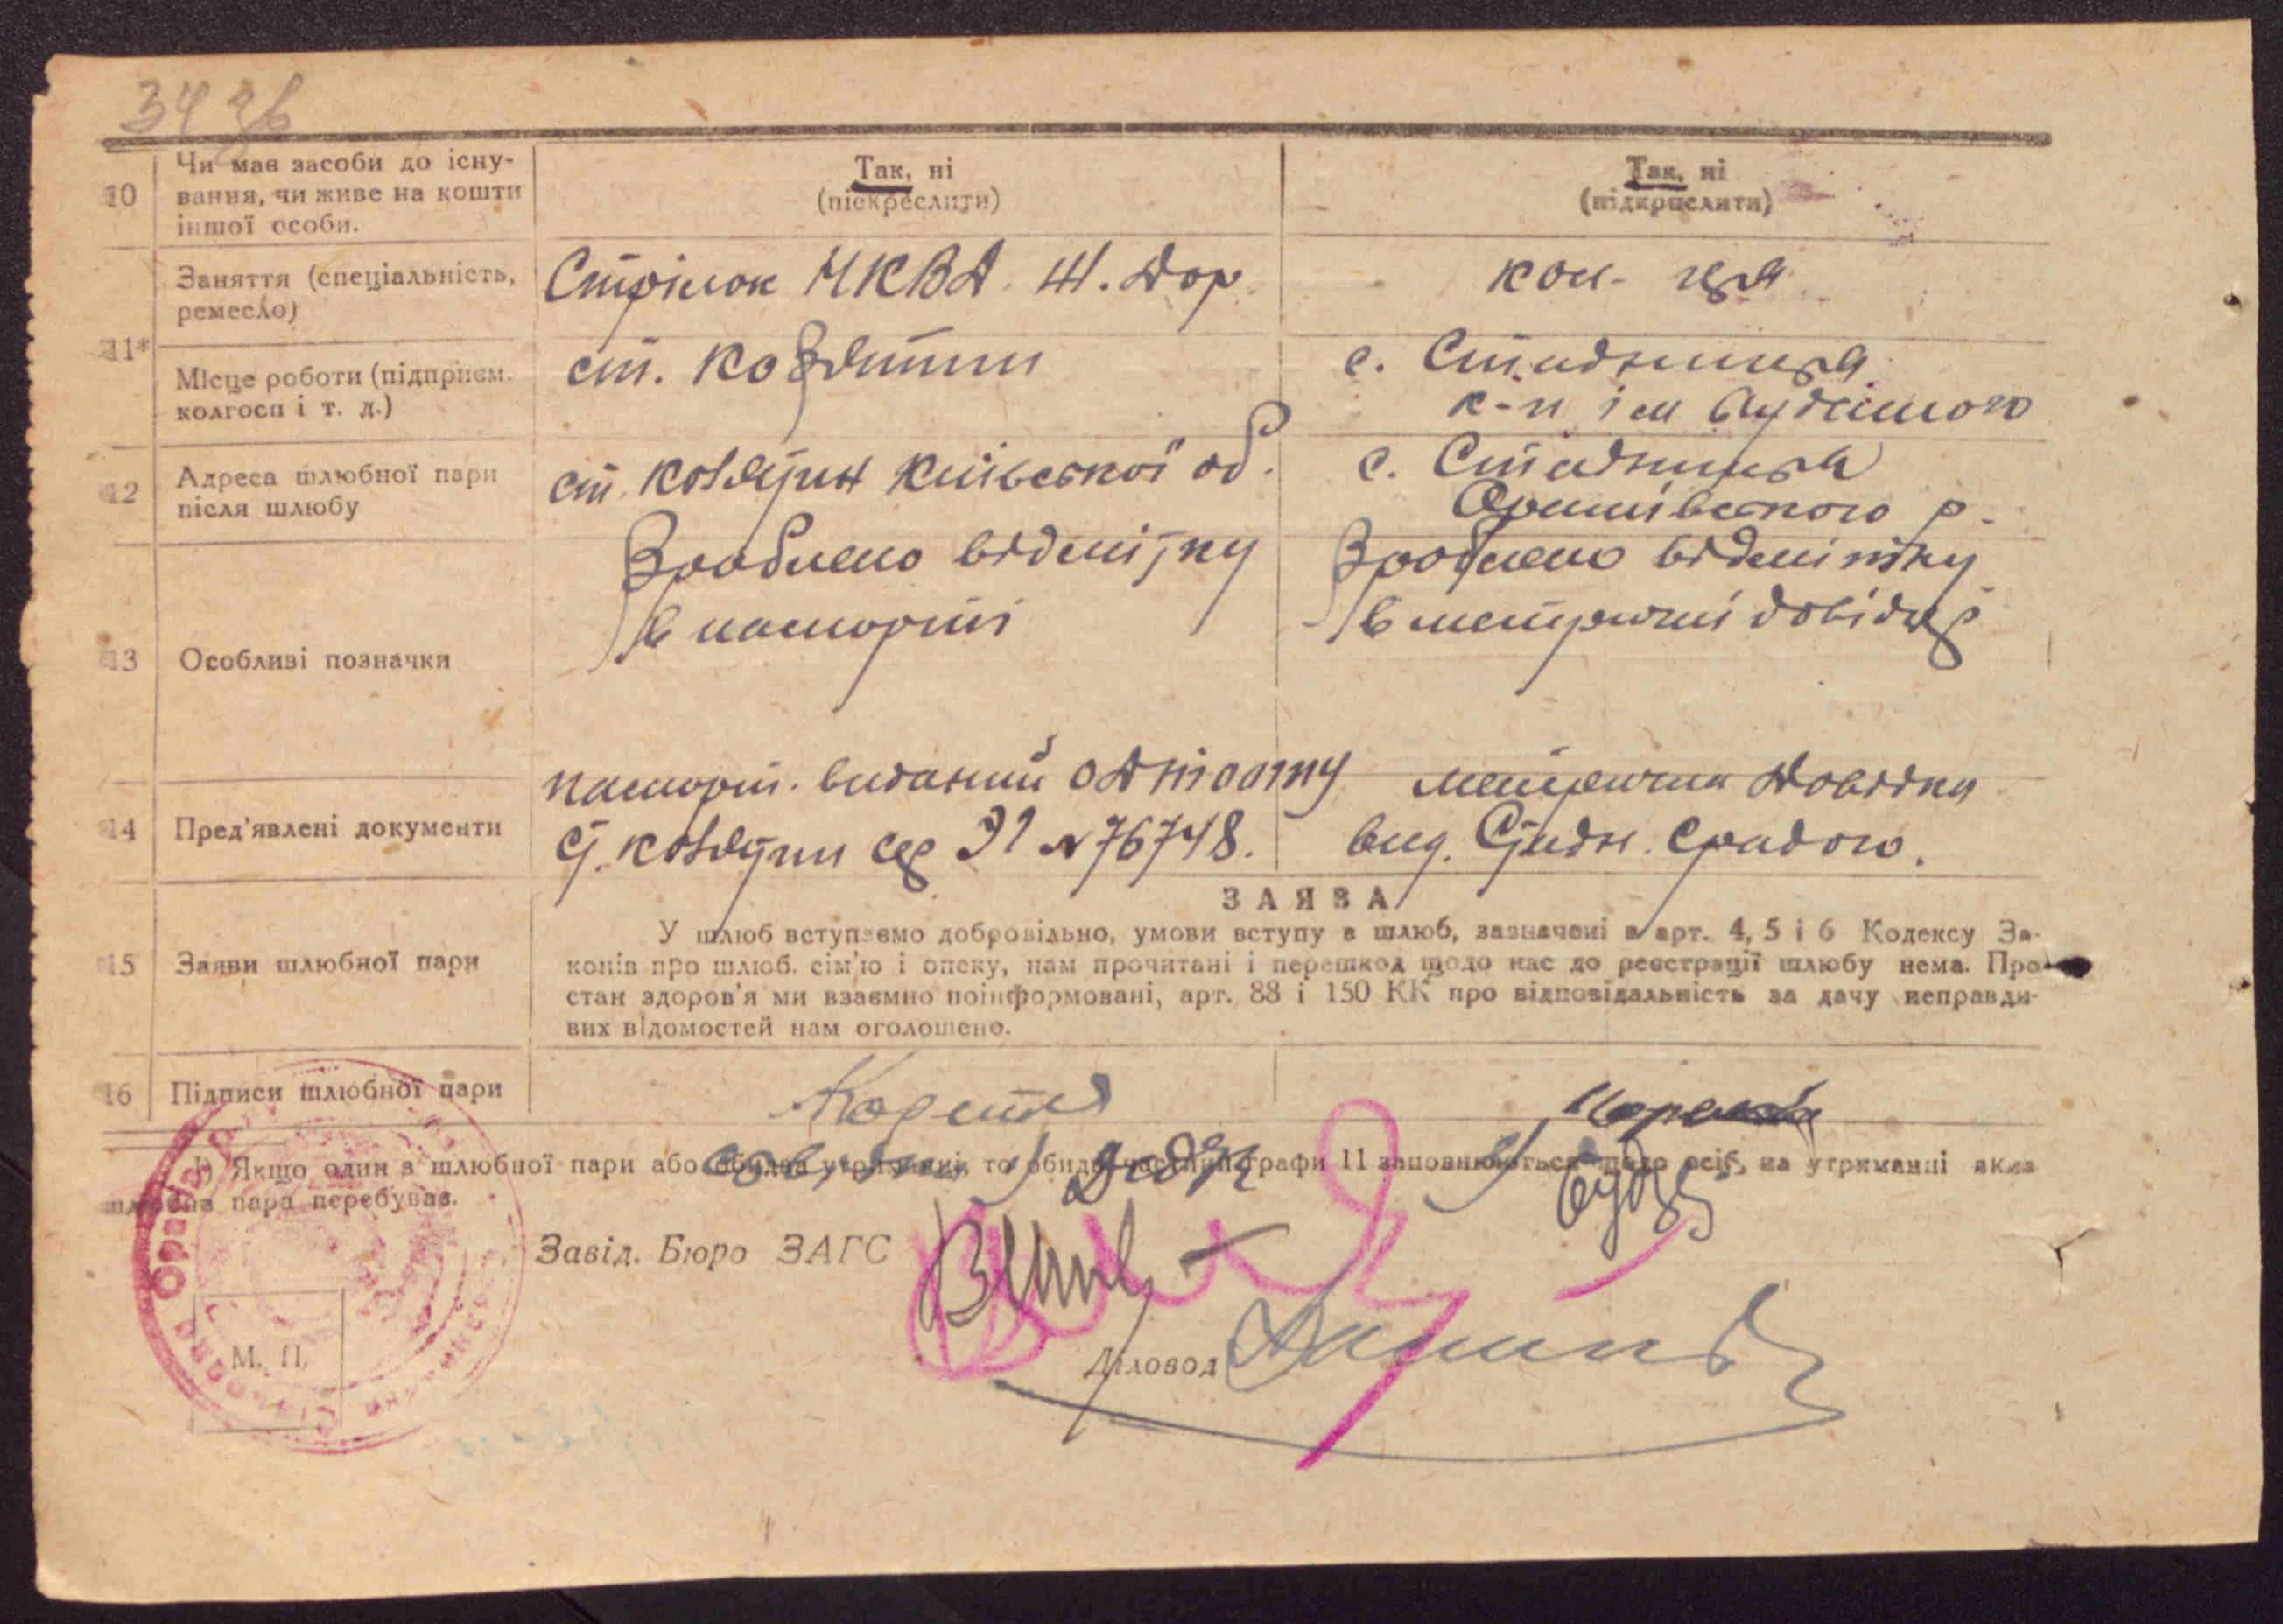 34 зв
10
Чи має засоби до існу-
вання, чи живе на кошти
іншої особи.
Так, ні
(піскреслити)
Так, ні
(підкрислити)
11*
Заняття (спеціальність,
ремесло)
Стрілок НКВД. Ж. Дор.
кол- ця
Місце роботи (підприєм.
колгосп і т. д.)
ст. Козятин
с. Стадниця
к-п ім Будьоного
12
Адреса шлюбної пари
після шлюбу
ст. Козятин Київської об.
с. Стадниця
р.
13
Особливі позначки
Зроблено відмітку
в паспорті
Зроблено відмітку
в метричній довідці
14
Пред'явлені документи
паспорт. виданий
ст. Козятин сер № 76748.
метрична довідка
вид. Стадн. с/радою.
15
Заяви шлюбної пари
ЗАЯВА
У шлюб вступаємо добровільно, умови вступу в шлюб, зазначені в арт. 4, 5 і 6 Кодексу За-
конів про шлюб. сім'ю і опеку, нам прочитані і перешкод щодо нас до реєстрації шлюбу нема. Про
стан здоров'я ми взаємно поінформовані, арт. 88 і 150 КК про відповідальність за дачу неправди-
вих відомостей нам оголошено.
16
Підписи шлюбної пари
1) Якщо один з шлюбної пари або обидва утриманці, то обидві частини графи 11 заповнюються щодо осіб, на утриманні яких
шлюбна пара перебуває.
Завід. Бюро ЗАГС
М. П.
Діловод